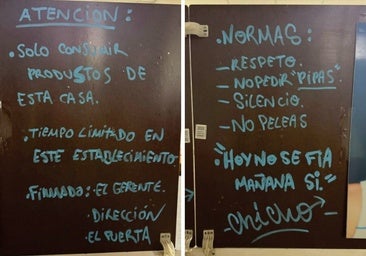 ATENCION:
• SOLO CONSUMIR
PRODUCTOS DE
ESTA CASA.
• TIEMPO LIMITADO EN
ESTE ESTABLECIMIENTO
• FIRMADO: EL GERENTE.
• DIRECCIÓN
• EL PUERTA
• NORMAS:
– RESPETO.
– NO PEDIR "PIPAS"
– SILENCIO.
– NO PELEAS
• "HOY NO SE FIA
MAÑANA SI."
– chicho